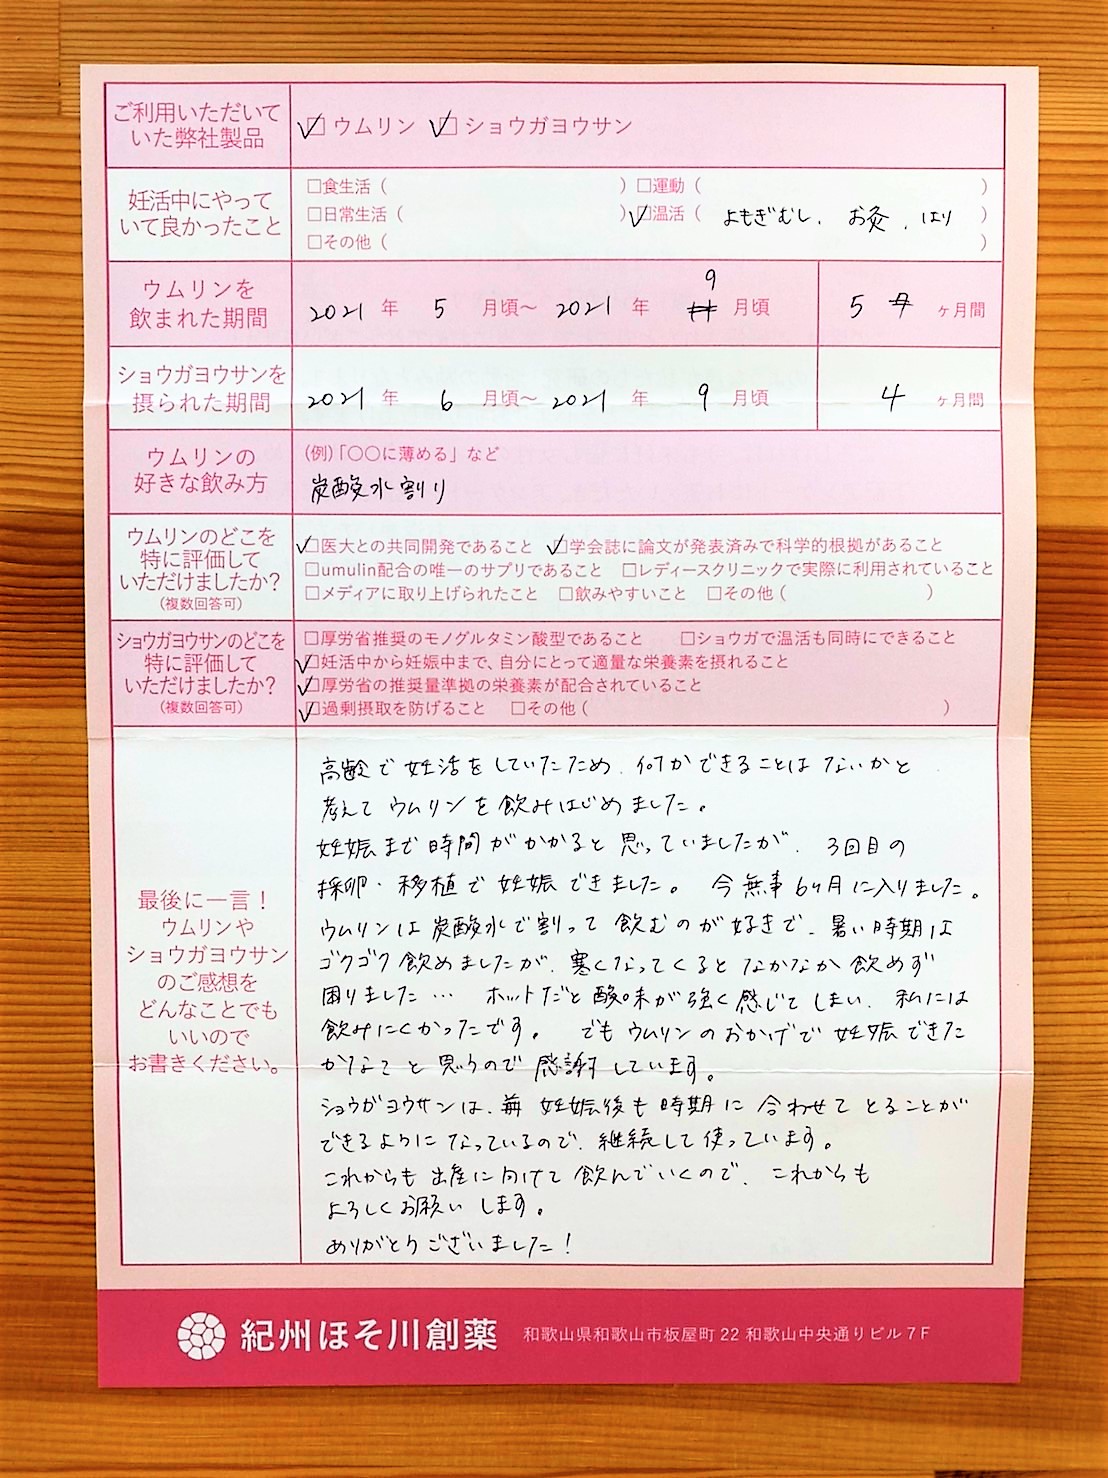 ご利用いただいて
いた弊社製品
☑ウムリン ☑ショウガヨウサン
妊活中にやって
いて良かったこと
□食生活（ ）□運動（ ）
□日常生活（ ）☑温活（ よもぎむし、お灸、はり ）
□その他（ ）
ウムリンを
飲まれた期間
2021 年 5 月頃〜 2021 年 9 月頃 5 ヶ月間
ショウガヨウサンを
摂られた期間
2021 年 6 月頃〜 2021 年 9 月頃 4 ヶ月間
ウムリンの
好きな飲み方
（例）「〇〇に薄める」など
炭酸水割り
ウムリンのどこを
特に評価して
いただけましたか？
（複数回答可）
☑医大との共同開発であること ☑学会誌に論文が発表済みで科学的根拠があること
□umulin配合の唯一のサプリであること □レディースクリニックで実際に利用されていること
□メディアに取り上げられたこと □飲みやすいこと □その他（ ）
ショウガヨウサンのどこを
特に評価して
いただけましたか？
（複数回答可）
□厚労省推奨のモノグルタミン酸型であること □ショウガで温活も同時にできること
☑妊活中から妊娠中まで、自分にとって適量な栄養素を摂れること
☑厚労省の推奨量準拠の栄養素が配合されていること
☑過剰摂取を防げること □その他（ ）
最後に一言！
ウムリンや
ショウガヨウサン
のご感想を
どんなことでも
いいので
お書きください。
高齢で妊活をしていたため、何かできることはないかと
考えてウムリンを飲みはじめました。
妊娠まで時間がかかると思っていましたが、3回目の
採卵・移植で妊娠できました。 今無事6ヶ月に入りました。
ウムリンは炭酸水で割って飲むのが好きで、暑い時期は
ゴクゴク飲めましたが、寒くなってくるとなかなか飲めず
困りました… ホットだと酸味が強く感じてしまい、私には
飲みにくかったです。 でもウムリンのおかげで妊娠できた
かなぁと思うので感謝しています。
ショウガヨウサンは、妊娠後も時期に合わせてとることが
できるようになっているので、継続して使っています。
これからも出産に向けて飲んでいくので、これからも
よろしくお願いします。
ありがとうございました！
紀州ほそ川創薬 和歌山県和歌山市板屋町 22 和歌山中央通りビル 7F